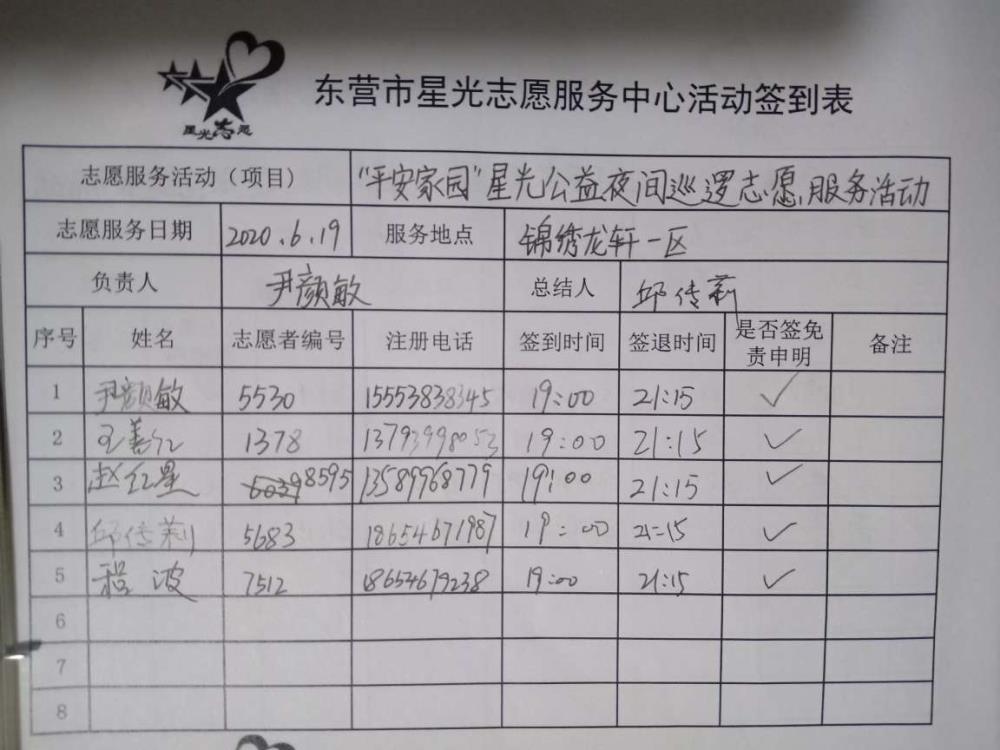 星光志愿
东营市星光志愿服务中心活动签到表
志愿服务活动（项目） "平安家园"星光公益夜间巡逻志愿服务活动
志愿服务日期 2020.6.19 服务地点 锦绣龙轩一区
负责人 尹颜敏 总结人 邱传莉
序号 姓名 志愿者编号 注册电话 签到时间 签退时间 是否签免责申明 备注
1 尹颜敏 5530 15553838345 19:00 21:15 ✓
2 王善红 1378 13793998053 19:00 21:15 ✓
3 赵红星 8595 13589968779 19:00 21:15 ✓
4 邱传莉 5683 18654671987 19:00 21:15 ✓
5 程波 7512 18654679238 19:00 21:15 ✓
6
7
8